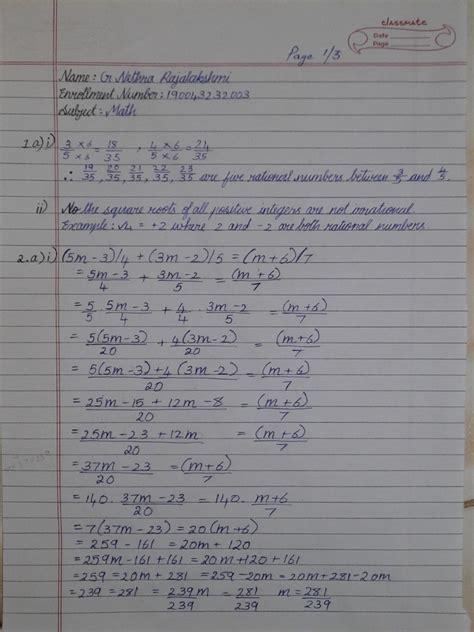 classmate
Date
Page
Page 1/3
Name: G Nithra Rajalakshmi
Enrollment Number: 190043232003
Subject: Math
1.a) i) 3/5 ×6/×6 = 18/35 , 4×6/5×6 = 24/35
∴ 19/35, 20/35, 21/35, 22/35, 23/35 are five rational numbers between 3/5 and 4/5.
ii) No the square roots of all positive integers are not irrational.
Example: √4 = ±2 where 2 and -2 are both rational numbers.
2.a) i) (5m-3)/4 + (3m-2)/5 = (m+6)/7
= 5m-3/4 + 3m-2/5 = (m+6)/7
= 5/5 · 5m-3/4 + 4/4 · 3m-2/5 = (m+6)/7
= 5(5m-3)/20 + 4(3m-2)/20 = (m+6)/7
= 5(5m-3)+4(3m-2)/20 = (m+6)/7
= 25m-15+12m-8/20 = (m+6)/7
= 25m-23+12m/20 = (m+6)/7
= 37m-23/20 = (m+6)/7
= 140 · 37m-23/20 = 140 · m+6/7
= 7(37m-23) = 20(m+6)
= 259-161 = 20m+120
= 259m-161+161 = 20m+120+161
= 259 = 20m+281 = 259-20m = 20m+281-20m
= 239 = 281 = 239m/239 = 281/239 m = 281/239